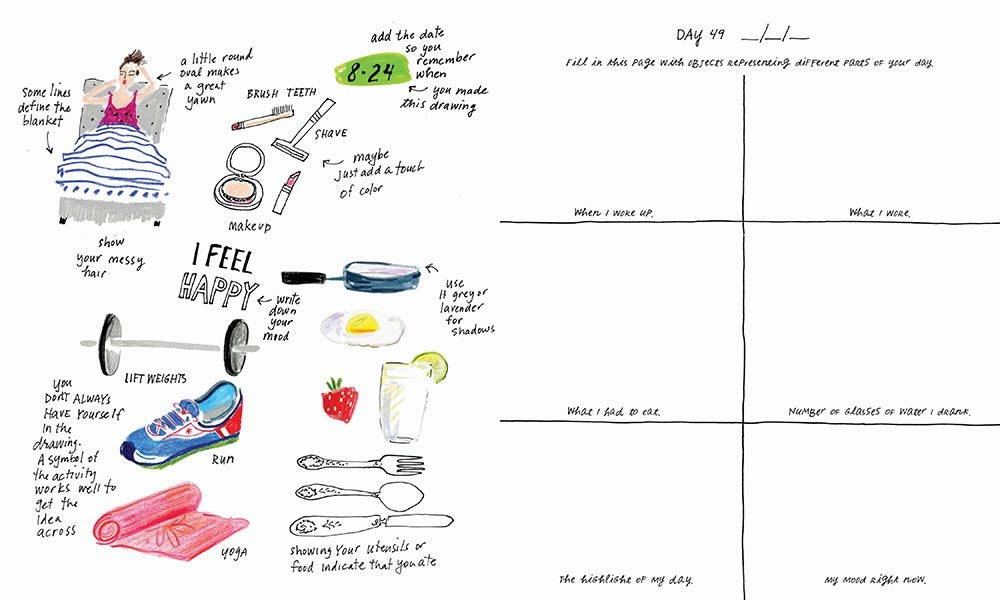 add the date
so you
remember
when
you made
this drawing
8·24
a little round
oval makes
a great
yawn
some lines
define the
blanket
BRUSH TEETH
SHAVE
maybe
just add a touch
of color
Makeup
show
your messy
hair
I FEEL
HAPPY
write
down
your
mood
use
lt grey or
lavender
for
shadows
LIFT WEIGHTS
you
DON'T ALWAYS
HAVE Yourself
In the
drawing.
A symbol of
the activity
works well to
get the
Idea
across
Run
YOGA
showing your utensils or
food indicate that you ate
DAY 49 __/__/__
Fill in this page with objects representing different parts of your day.
When I woke up.
What I wore.
What I had to eat.
Number of glasses of water I drank.
The highlight of my day.
My mood right now.